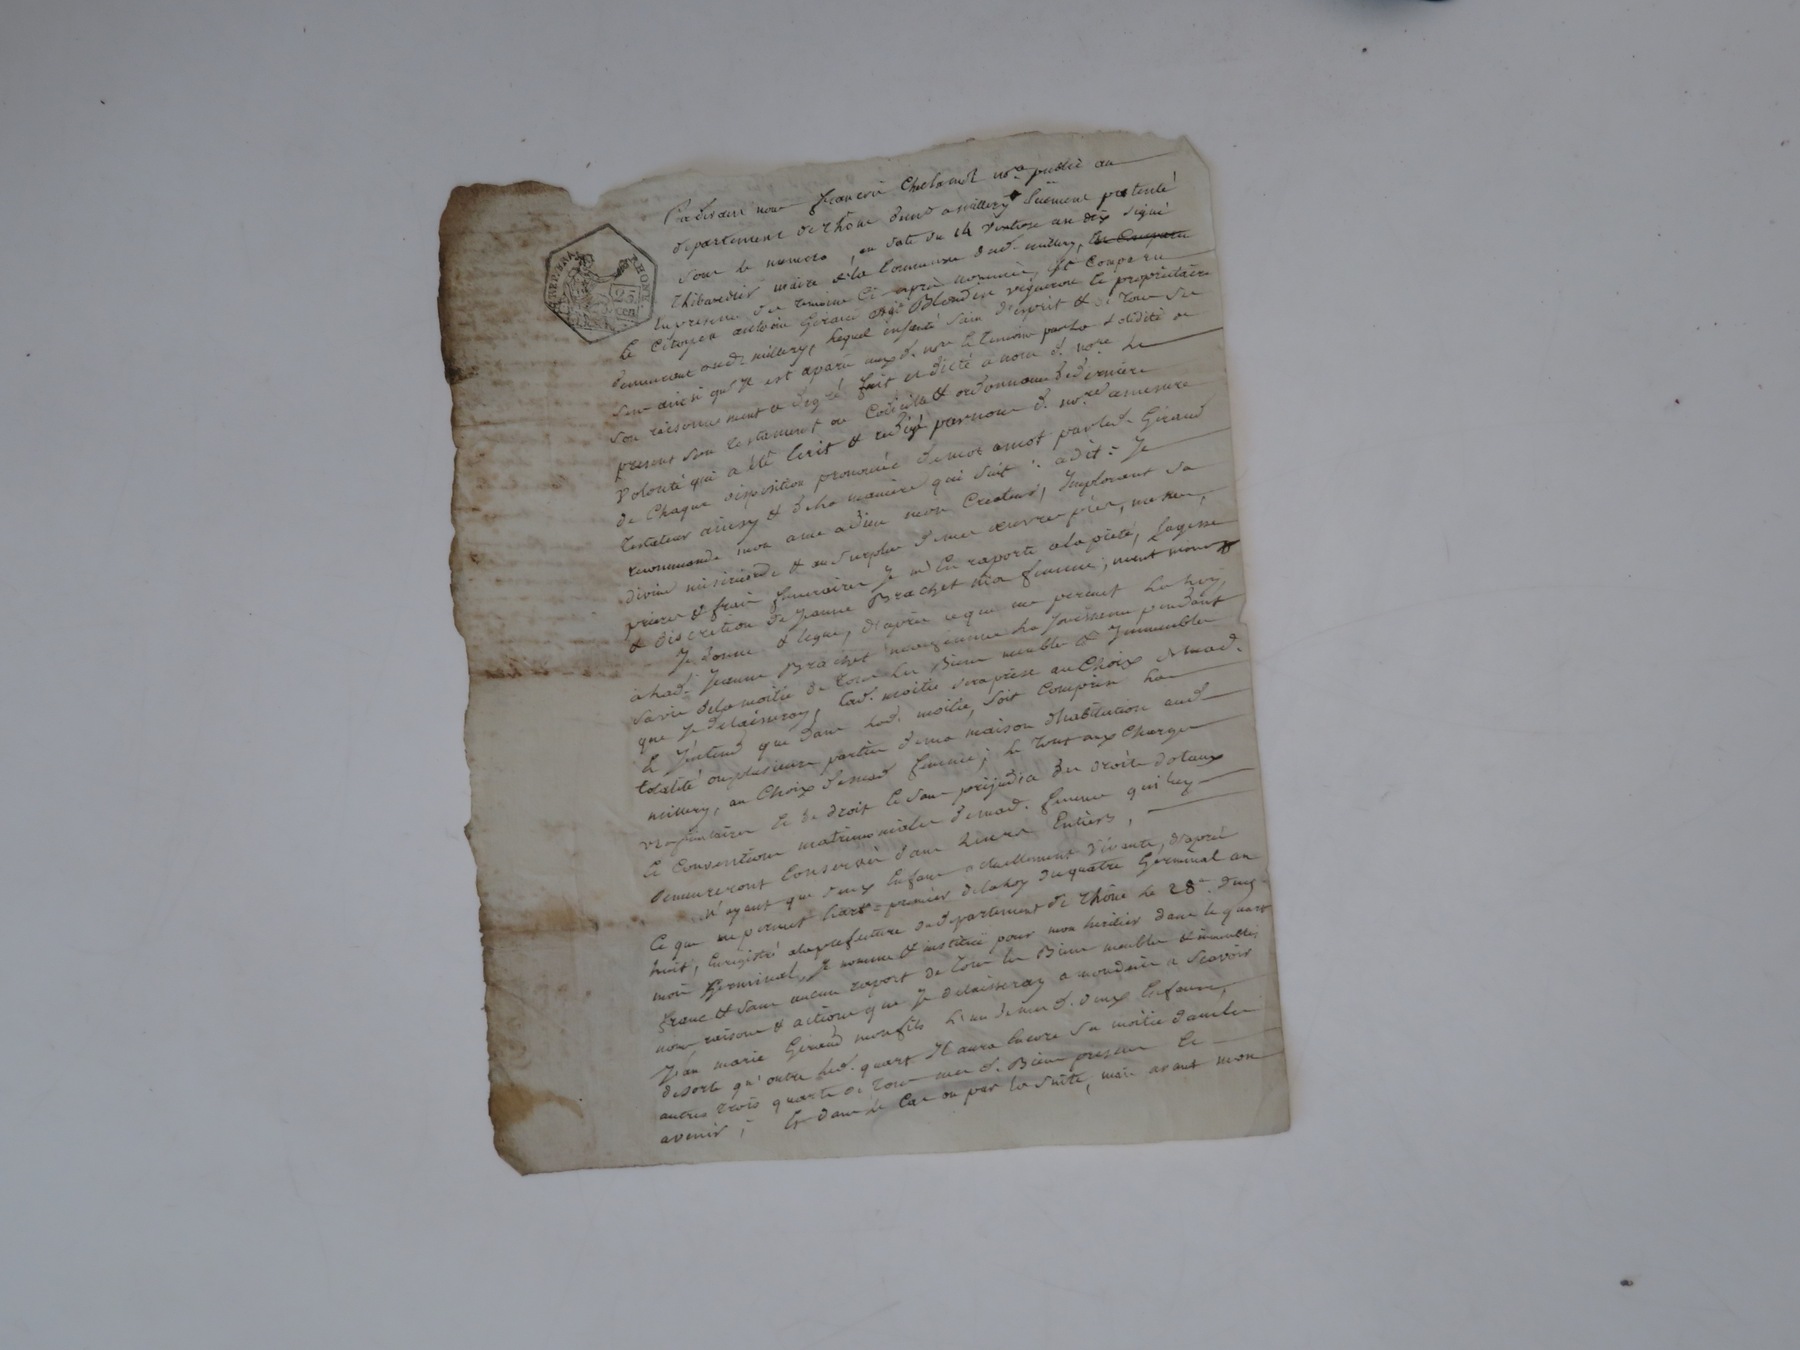 Pardevant nous françois Chelanol nore public au
departement de Rhône dem.t a millery Suement patenté
sous le numero 1 en date du 14 Ventose an dix Signé
Thibaudier maire de la Commune dud. millery, est Comparu
En presence des temoins Ci après nommés, Est Comparu
le Citoyen antoine Giraud dit Blondin vigneron et propriétaire
demeurant aud. millery, lequel en santé sain d'esprit & de tous ses
sens ainsi qu'il est aparu auxd. nore & temoins par la solidité de
son raisonnement a de gré fait et dicté a nous d. nore. le
present son testament ou Codicille & ordonnance de derniere
Volonté qui a été Ecrit & redigé par nous d. nore a mesure
de Chaque disposition prononcée de mot a mot par led. Giraud
testateur ainsy & de la maniere qui suit : a dit : Je
recommande mon ame a Dieu mon Createur, Implorant sa
divine misericorde & au surplus de mes œuvres pies, messes,
prieres & frais funeraires Je m'En raporte a la pieté, sagesse
& discretion de Jeanne Brachet ma femme,
Je donne & legue, d'après ce que me permet la loy,
a lad. Jeanne Brachet ma femme la Jouissance pendant
sa vie de la moitié de tous les Biens meubles & Immeubles
que Je delaisseray, lad. moitié sera prise au Choix de mad.
Et J'entend que dans lad. moitié, soit Compris la
totalité ou plusieurs parties de ma maison d'habitation aud.
millery, au Choix de mad. femme; le tout aux Charges
usufruitaires et de droit et sans prejudice des droits dotaux
et Conventions matrimoniales de mad. femme qui luy
demeureront Conservés dans leurs Entiers,
N'ayant que deux Enfans actuellement vivants, d'après
Ce que me permet l'art. premier de la loy du quatre Germinal an
huit, Enregistré a la prefecture du departement de Rhône le 28e. dud.
mois Germinal, Je nomme & institue pour mon heritier dans le quart
franc & sans aucun raport de tous les Biens meubles & immeubles
noms raisons & actions que Je delaisseray a mon decès a scavoir
Jean marie Giraud mon fils l'un de mes d. deux Enfans,
de sorte qu'outre led. quart Il aura Encore sa moitié dans les
autres trois quarts de tous mes d. Biens presens et
avenir; Et dans le Cas ou par la suite, mais avant mon
RHONE
25
CEN